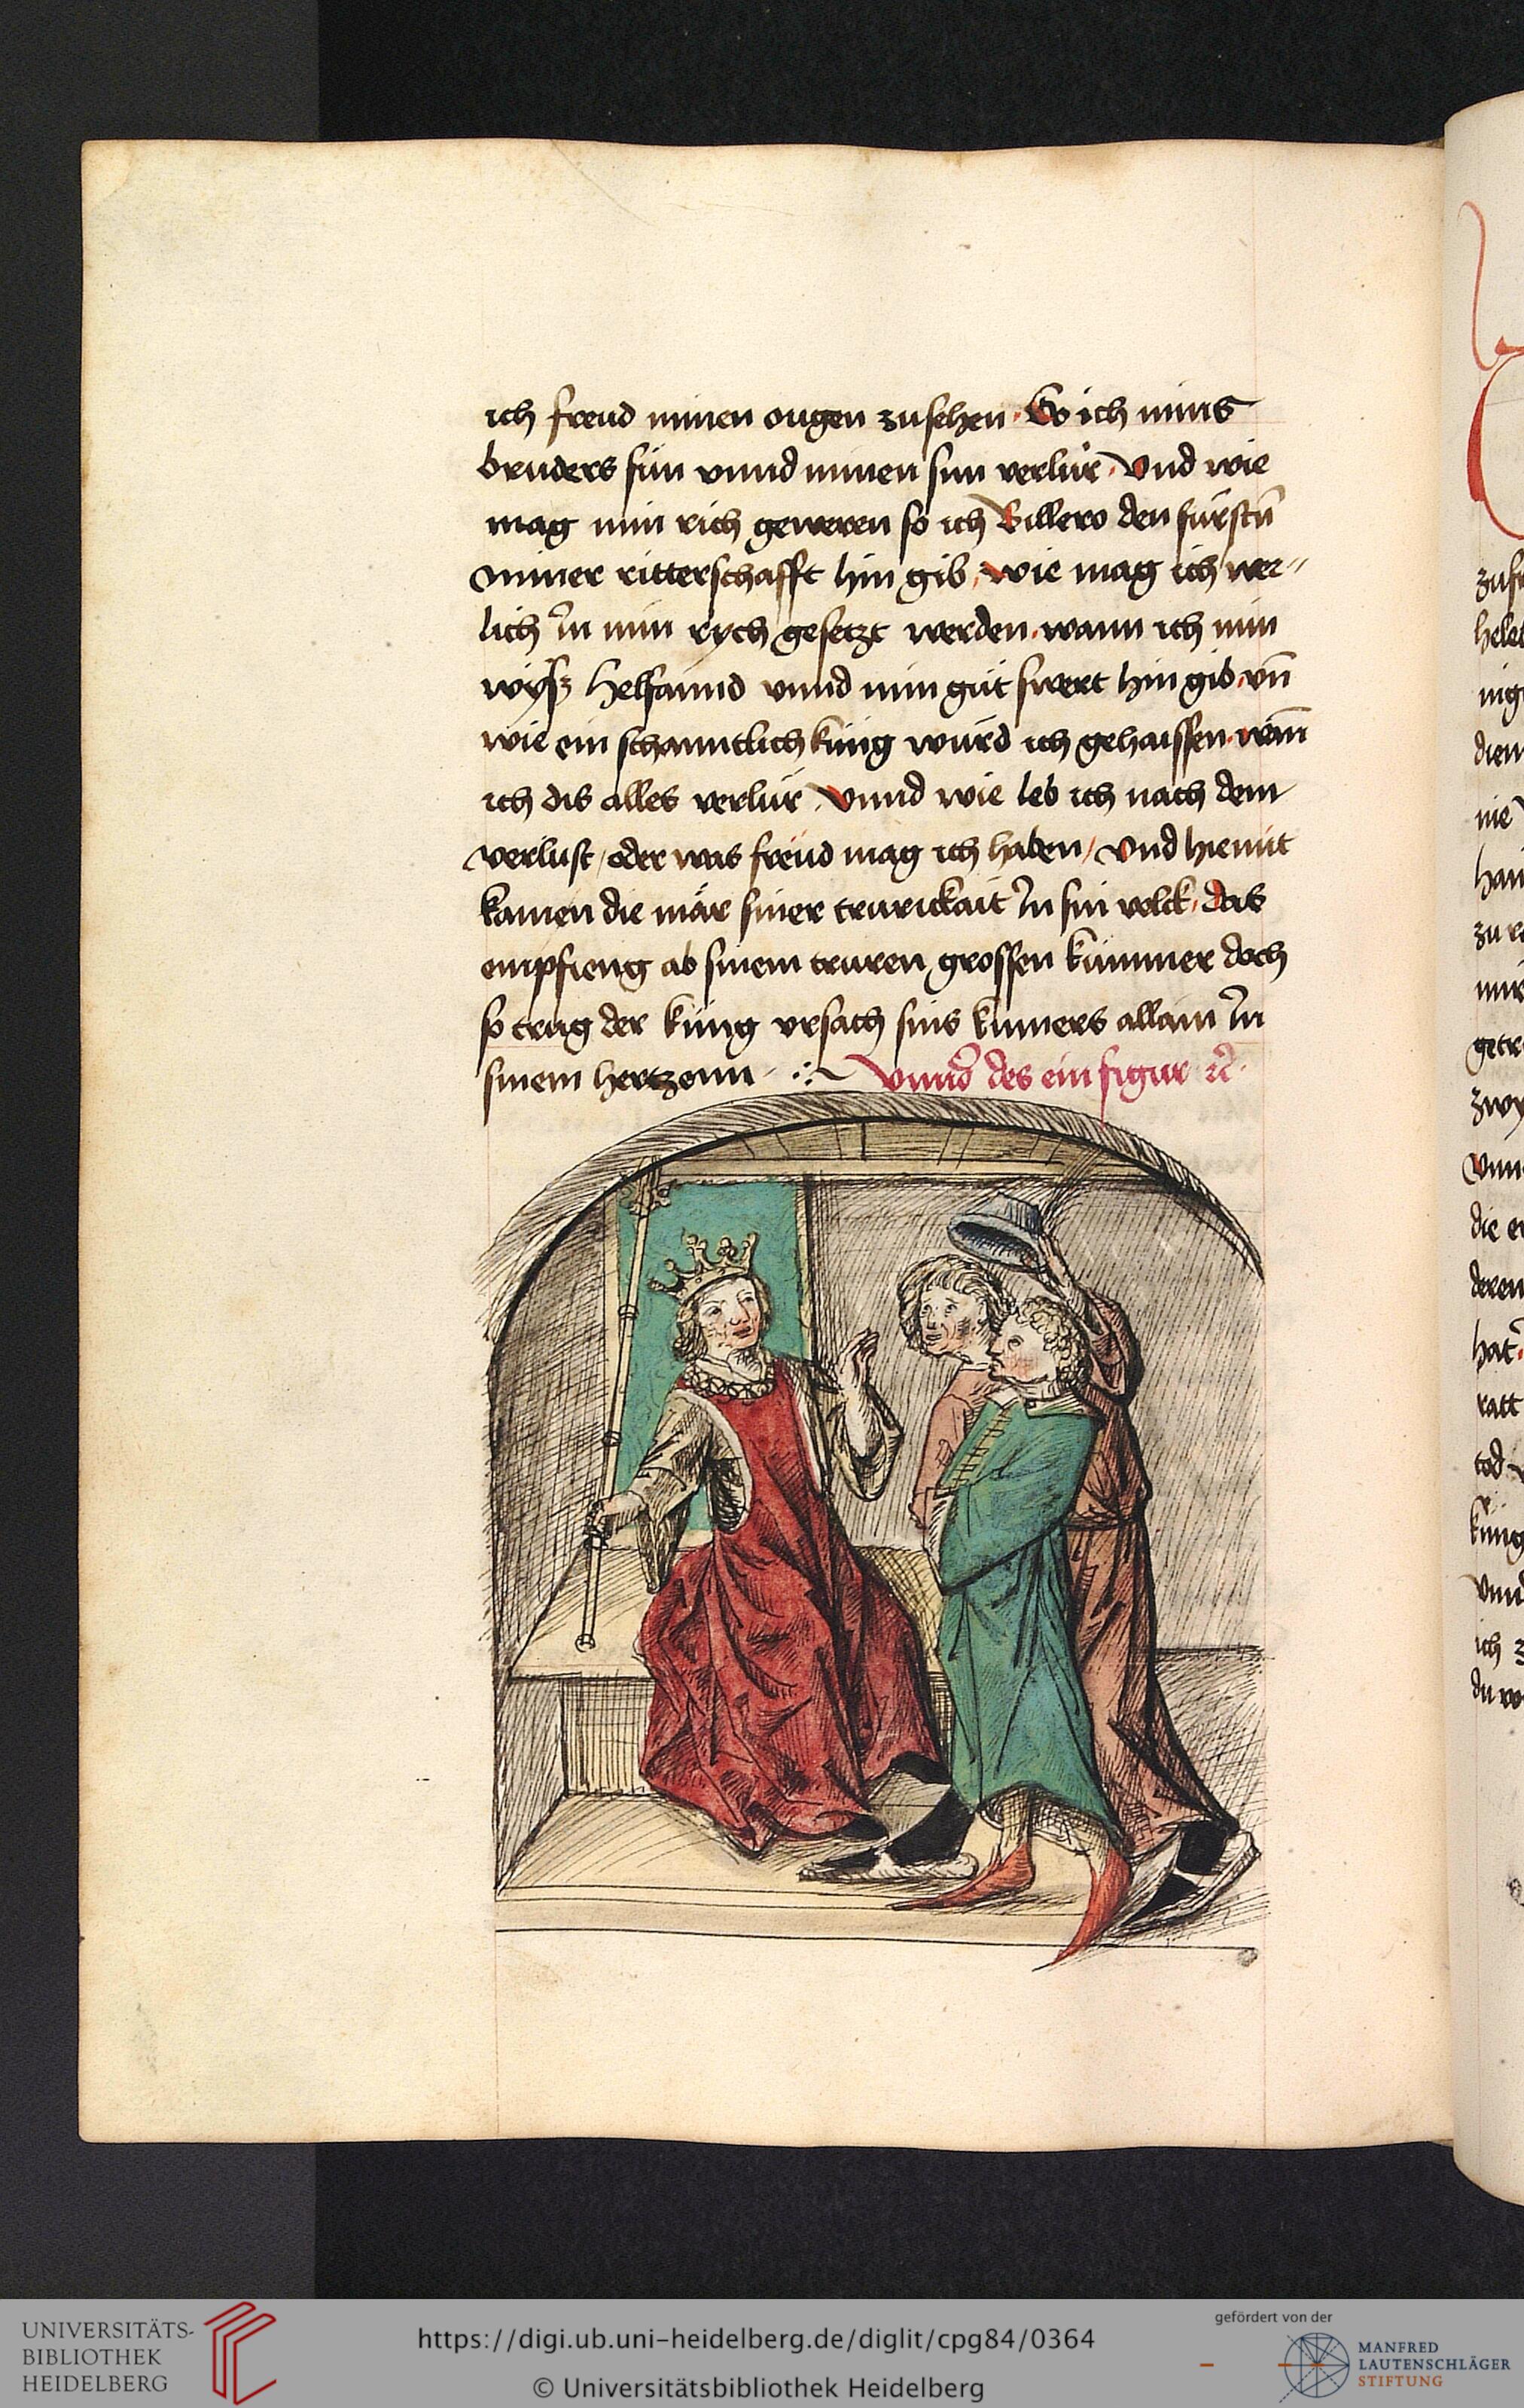 ich freud minen ougen zusehen. So ich mins
bruders sün vnnd minen sun verlür. Vnd wie
mag min rich geweren so ich Billero den fürstē
miner ritterschafft hin gib, wie mag ich wer-
lich in min rych gesetzt werden. wann ich min
wysz helfannd vnnd min güt swert hin gib, vn̄
wie ein schanntlich küng würd ich gehaissen. wān
ich dis alles verlür. Vnnd wie leb ich nach dem
verlust / oder was freüd mag ich haben / Vnd hiemit
kamen die mär siner trurickait in sin volck. das
empfieng ab sinem truren grossen kummer doch
so trug der küng vrsach sins kumers allain in
sinem hertzenn
Vnnd des ein figur
zuse
dien
nie
zu
ratt
vnnd
ich
du
UNIVERSITÄTS-
BIBLIOTHEK
HEIDELBERG
https://digi.ub.uni-heidelberg.de/diglit/cpg84/0364
© Universitätsbibliothek Heidelberg
gefördert von der
MANFRED
LAUTENSCHLÄGER
STIFTUNG